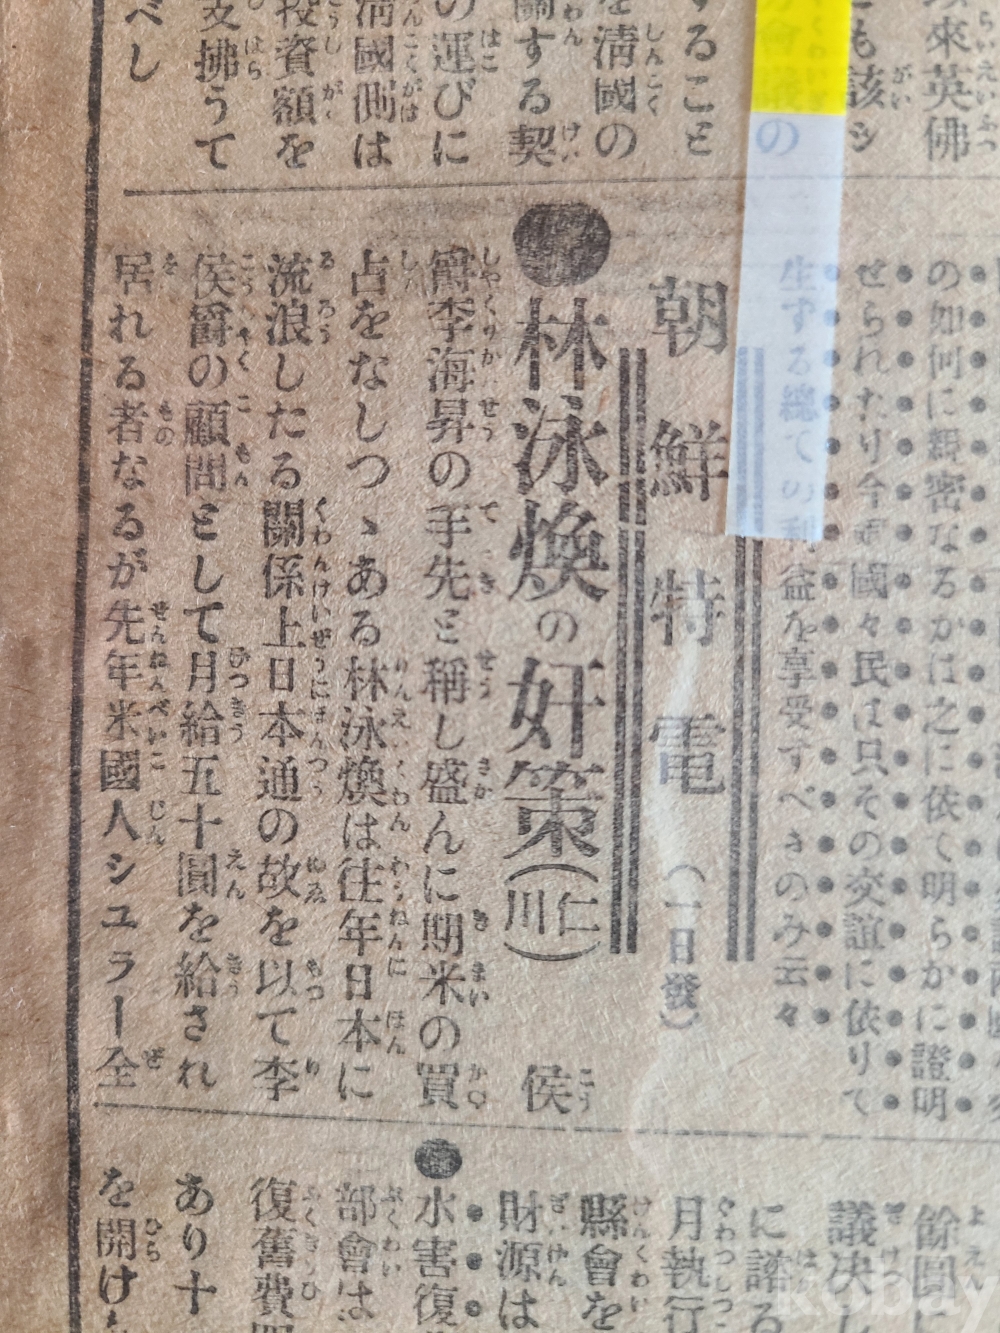 來英佛
も該シ
の
ること
淸國の
關する契
の運びに
淸國側は
投資額を
支拂うて
べし
の如何に親密なるかは之に依て明らかに證明
せられたり今兩國々民は只その交誼に依りて
生ずる總ての利益を享受すべきのみ云々
朝鮮特電(一日發)
●林泳煥の奸策(仁川) 侯
爵李海昇の手先と稱し盛んに期米の買
占をなしつゝある林泳煥は往年日本に
流浪したる關係上日本通の故を以て李
侯爵の顧問として月給五十圓を給され
居れる者なるが先年米國人シユラー全
餘圓に
議决し
に諮る
月執行
縣會を
財源は
●水害復
部會は
復舊費
あり十
を開け
kobay